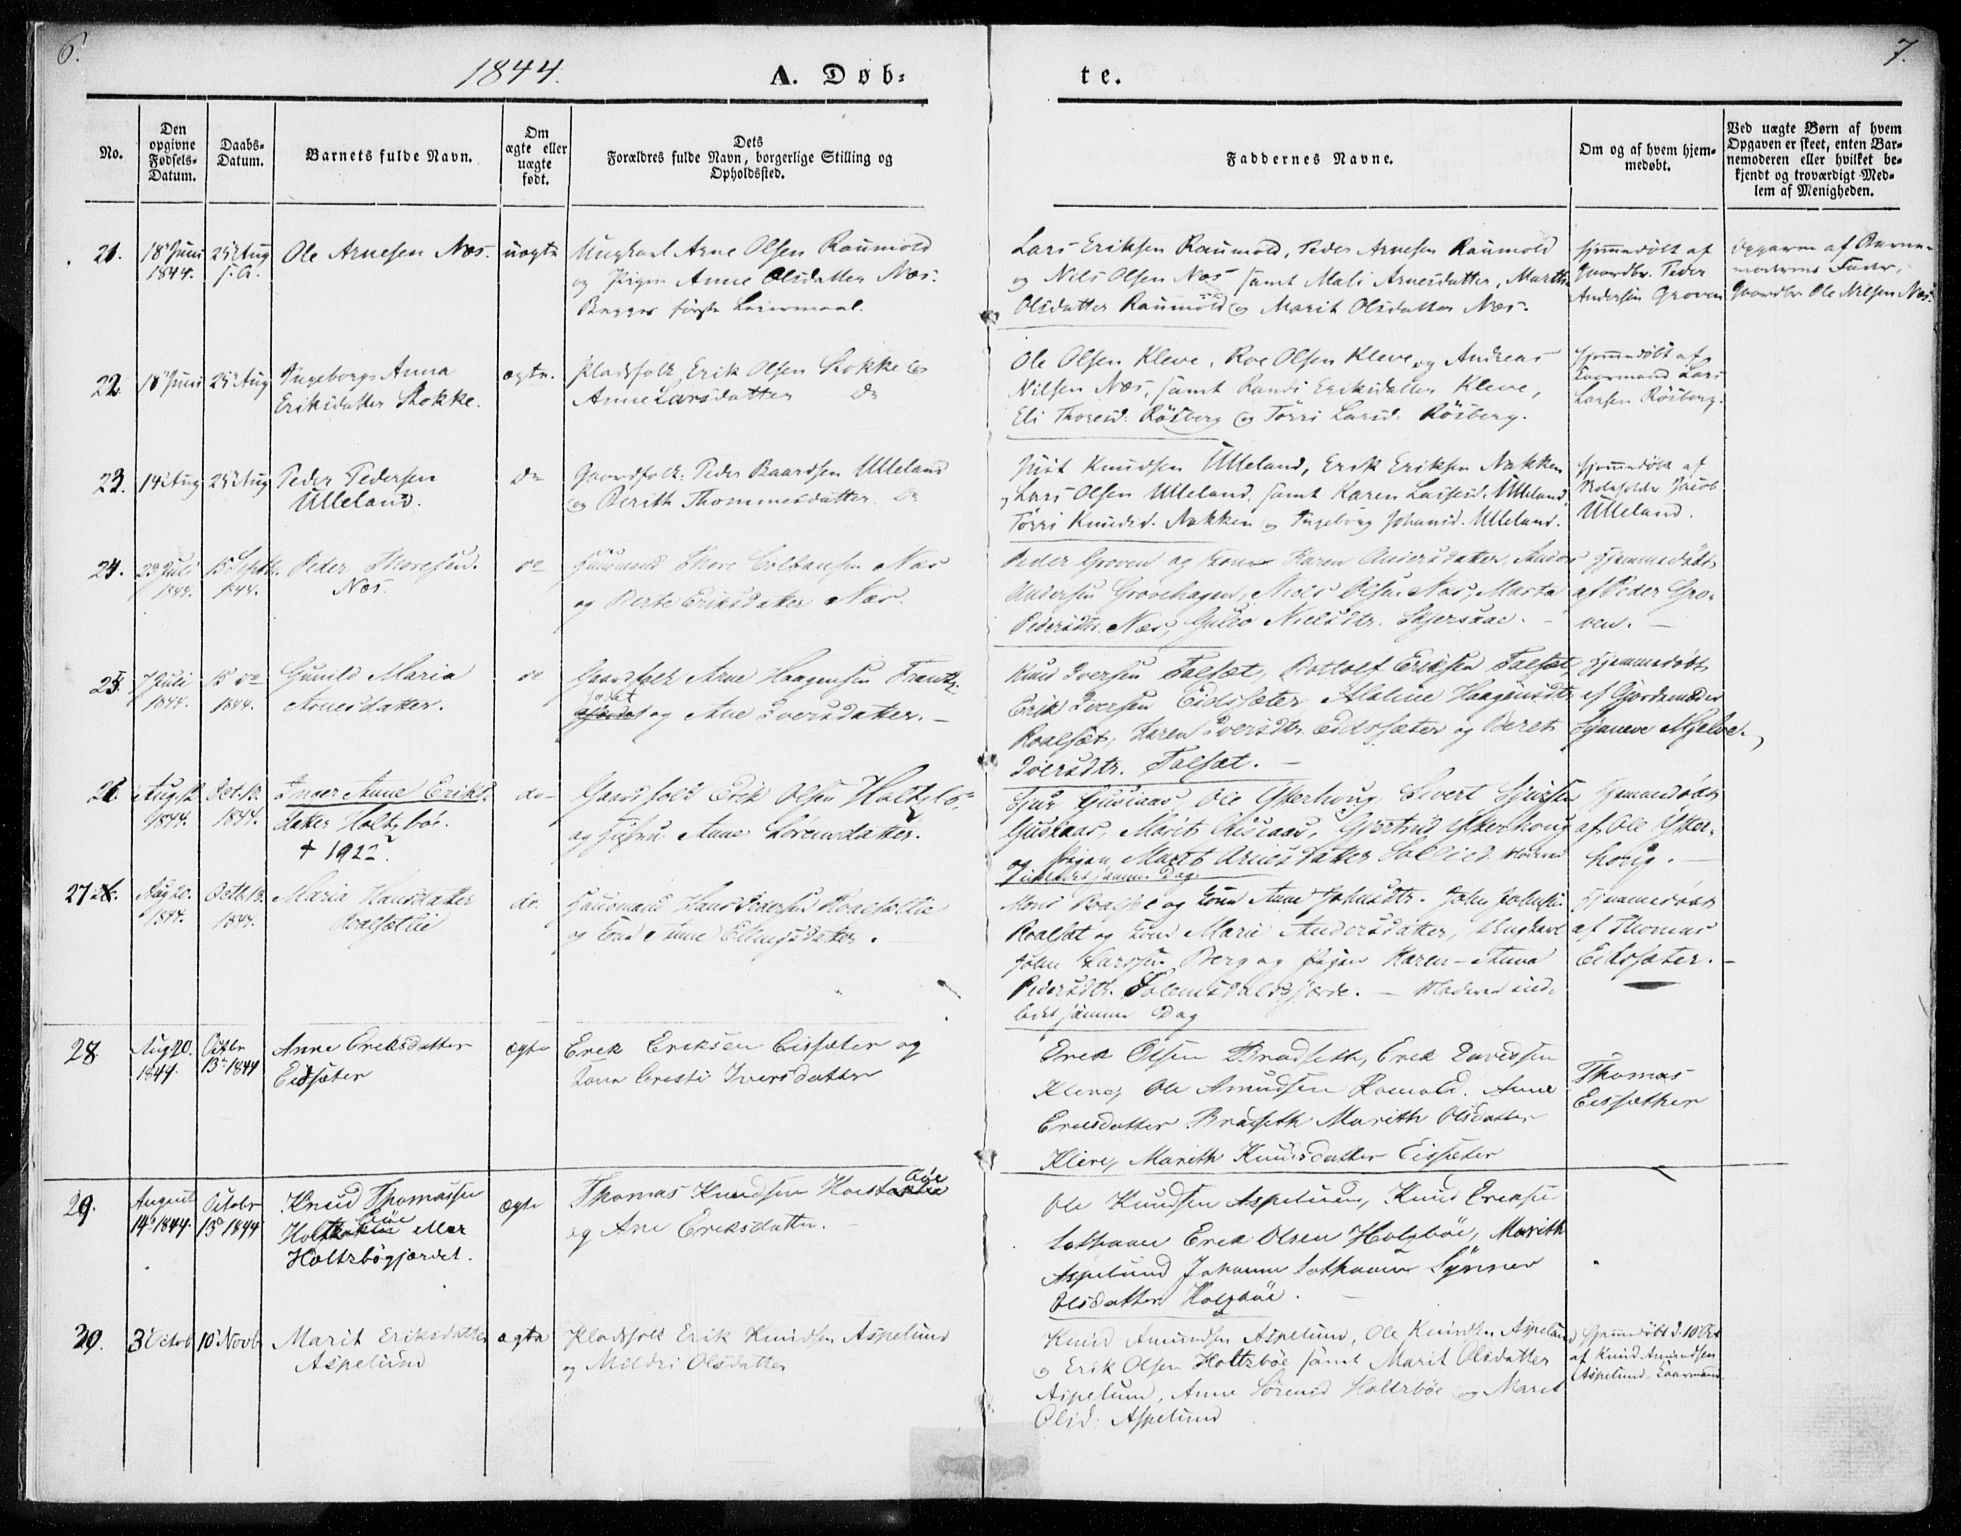 6.
7.
1844.
A. Døb-
te.
No.
Den opgivne Fødsels-Datum.
Daabs-Datum.
Barnets fulde Navn.
Om ægte eller uægte født.
Dets
Forældres fulde Navn, borgerlige Stilling og
Opholdssted.
Faddernes Navne.
Om og af hvem hjem-
medøbt.
Ved uægte Børn af hvem
Opgaven er skeet, enten Bar-
nemoderen eller hvilket be-
kjendt og troværdigt Med-
lem af Menigheden.
21.
18 Juni
1844.
25 Aug
s. A.
Ole Arnesen Næs.
uægte
Ungkarl Arne Olsen Raumold
og Pigen Anne Olsdatter Næs.
Begges første Leiermaal.
Lars Eriksen Raumold, Peder Arnesen Raumold
og Nils Olsen Næs samt Mali Arnesdatter, Marthe
Olsdatter Raumold og Marit Olsdatter Næs.
hjemmedøbt af
Gaardbr. Peder
Andersen Groven
Opgaven af Barne-
moderens Fader,
Gaardbr Ole Nilsen Næs.
22.
18 Juni
25 Aug
Ingeborg Anna
Eriksdatter Stokke.
ægte.
Pladsfolk Erik Olsen Stokke og
Anne Larsdatter do
Ole Olsen Kleve, Roe Olsen Kleve og Andreas
Nilsen Næs, samt Randi Eriksdatter Kleve,
Eli Thoresd. Røsberg og Torri Larsd. Røsberg.
hjemmedøbt af
Kaarmand Lars
Larsen Røsberg.
23.
14 Aug
25 Aug
Peder Pedersen
Ulleland.
do
Gaardfolk: Peder Baardsen Ulleland
og Berith Thommesdatter do
Knudsen Ulleland, Erik Eriksen Nakken
og Lars Olsen Ulleland, samt Karen Lassesd. Ulleland,
Torri Knudsd. Nakken og Ingeborg Johansd. Ulleland.
hjemmedøbt af
Skoleholder Jacob
Ulleland.
24.
23 Juli
1844.
15 Septb.
1844.
Peder Thoresen
Næs.
do
Huusmand Thore Colbansen Næs
og Berte Eriksdatter Næs.
Peder Groven og Kone Karen Andersdatter, Anders
Andersen Grovehagen, Niels Olsen Næs, Marta
Pedersdtr. Næs, Nielsdtr. Skjersaae.
Hjemmedøbt
af Peder Gro-
ven.
25.
7 Juli
1844.
15 do
1844.
Gunild Maria
Arnesdatter.
do
Gaardfolk Arne Haagensen
og Ane Iversdatter.
Knud Iversen Talsæt, Bottolf Eriksen Talsæt,
Erik Iversen Eidsæter, Maline Haagensdtr.
Roalsæt, Karen Iversdtr. Eidssæter og Beret
Iversdtr. Talsæt.
Hjemmedøbt
af Gjordemoder
Synneve Mjelve.
26
Aug. 12
1844.
Oct. 13.
1844.
Inger Anne Eriks-
datter Holtzbøe.
† 1922.
do
Gaardfolk Erik Olsen Holtzbø
og Hustru Anne Sørensdatter.
Sjur Gusiaas, Ole Ytterhoug, Sivert Sjursen
Gusiaas, Marit Gusiaas, Gjertrud Ytterhoug
og Pigen Marit Arnesdatter Moderen
indledet samme Dag.
Hjemmedøbt
af Ole Ytter-
houg.
27
Aug 20.
1844.
Octb. 13.
1844.
Maria Hansdatter
Roalsætlie
do.
Huusmand Hans Roalsætlie
og Kone Anne Ellingsdatter.
Roalsæt og Kone Anne Johnsdtr. John Johnsen
Roalsæt og Kone Marie Andersdatter, Ungkarl
John Larssen Berg og Pigen Karen-Anna
Pedersdtr. Solemsdalsgjærde. — Moderen ind-
ledet samme Dag
Hjemmedøbt
af Thomas
Eidssæter.
28
Aug 20.
1844.
Octbr
13 1844
Anne Ereksdatter
Eissæter
ægte
Erek Ereksen Eissæter og
Kone Cresti Iversdatter
Erek Olsen Bradseth, Erek
Kleve, Ole Amundsen Romold. Anne
Ereksdatter Bradseth Marith Olsdatter
Kleve, Marith Knudsdatter Eissæter
Thomas
Eissæther
29.
August
14 1844.
Octobr
13 1844
Knud Thomassen
bøe eller
Holtzbøgjærdet.
ægte
Thomas Knudsen
bøe
og Ane Ereksdatter.
Ole Knudsen Aspelund, Knud Ereksen
Erek Olsen Holzbøe, Marith
Aspelund Johanne Synnev
Olsdatter Holzbøe.
30.
3 Octob
10 Novb
Marit Eriksdatter
Aspelund
ægte
Pladsfolk Erik Knudsen Aspelund
og Meldri Olsdatter
Knud Amundsen Aspelund, Ole Knudsen Aspelund
og Erik Olsen Holtzbøe samt Marit Olsdatter
Aspelund, Anne Sørensd Holtzbøe og Maret
Olsd: Aspelund
Hjemdøbt d. 10 Oct
af Knud Amundsen
Aspelund, Kaarmand